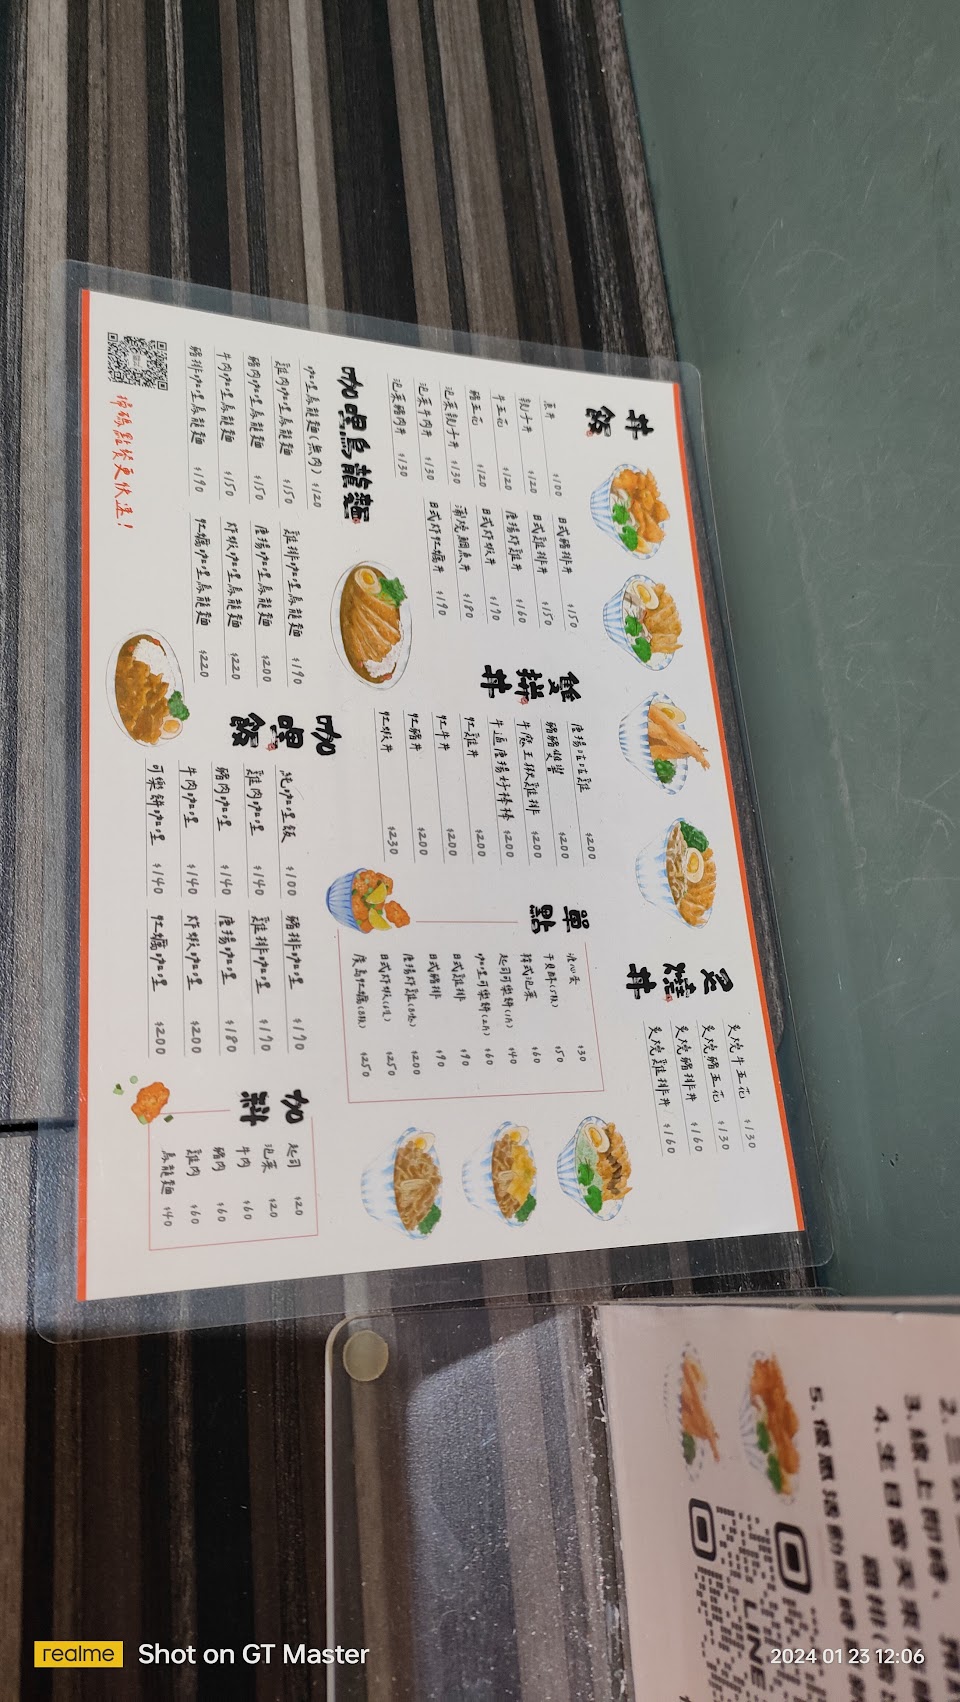 丼飯
素丼 $100
親子丼 $120
牛五花 $120
豬五花 $120
泡菜親子丼 $130
泡菜牛肉丼 $130
泡菜豬肉丼 $130
日式豬排丼 $150
日式雞排丼 $150
唐揚炸雞丼 $160
日式炸蝦丼 $190
蒲燒鯛魚丼 $180
日式炸牡蠣丼 $190
雙拼丼
唐揚咕咕雞 $200
豬豬雙響 $200
牛魔王椒雞排 $200
牛逼唐揚好棒棒 $200
牡雞丼 $200
牡牛丼 $200
牡豬丼 $200
牡蝦丼 $230
炙燒丼
炙燒牛五花 $130
炙燒豬五花 $130
炙燒豬排丼 $160
炙燒雞排丼 $160
單點
溏心蛋 $30
干貝酥(5顆) $50
韓式泡菜 $60
起司可樂餅(1片) $40
咖哩可樂餅(2片) $60
日式雞排 $90
日式豬排 $90
唐揚炸雞(8塊) $200
日式炸蝦(6隻) $250
廣島牡蠣(8顆) $250
咖哩烏龍麵
咖哩烏龍麵(無肉) $120
雞肉咖哩烏龍麵 $150
豬肉咖哩烏龍麵 $150
牛肉咖哩烏龍麵 $150
豬排咖哩烏龍麵 $190
雞排咖哩烏龍麵 $190
唐揚咖哩烏龍麵 $200
炸蝦咖哩烏龍麵 $220
牡蠣咖哩烏龍麵 $220
咖哩飯
純咖哩飯 $100
雞肉咖哩 $140
豬肉咖哩 $140
牛肉咖哩 $140
可樂餅咖哩 $140
豬排咖哩 $170
雞排咖哩 $170
唐揚咖哩 $180
炸蝦咖哩 $200
牡蠣咖哩 $200
加料
起司 $20
泡菜 $20
牛肉 $60
豬肉 $60
雞肉 $60
烏龍麵 $40
掃碼點餐更快速！
LINE
realme Shot on GT Master
2024 01 23 12:06